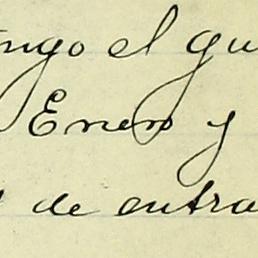 ngo el gu
Enero y
de entra